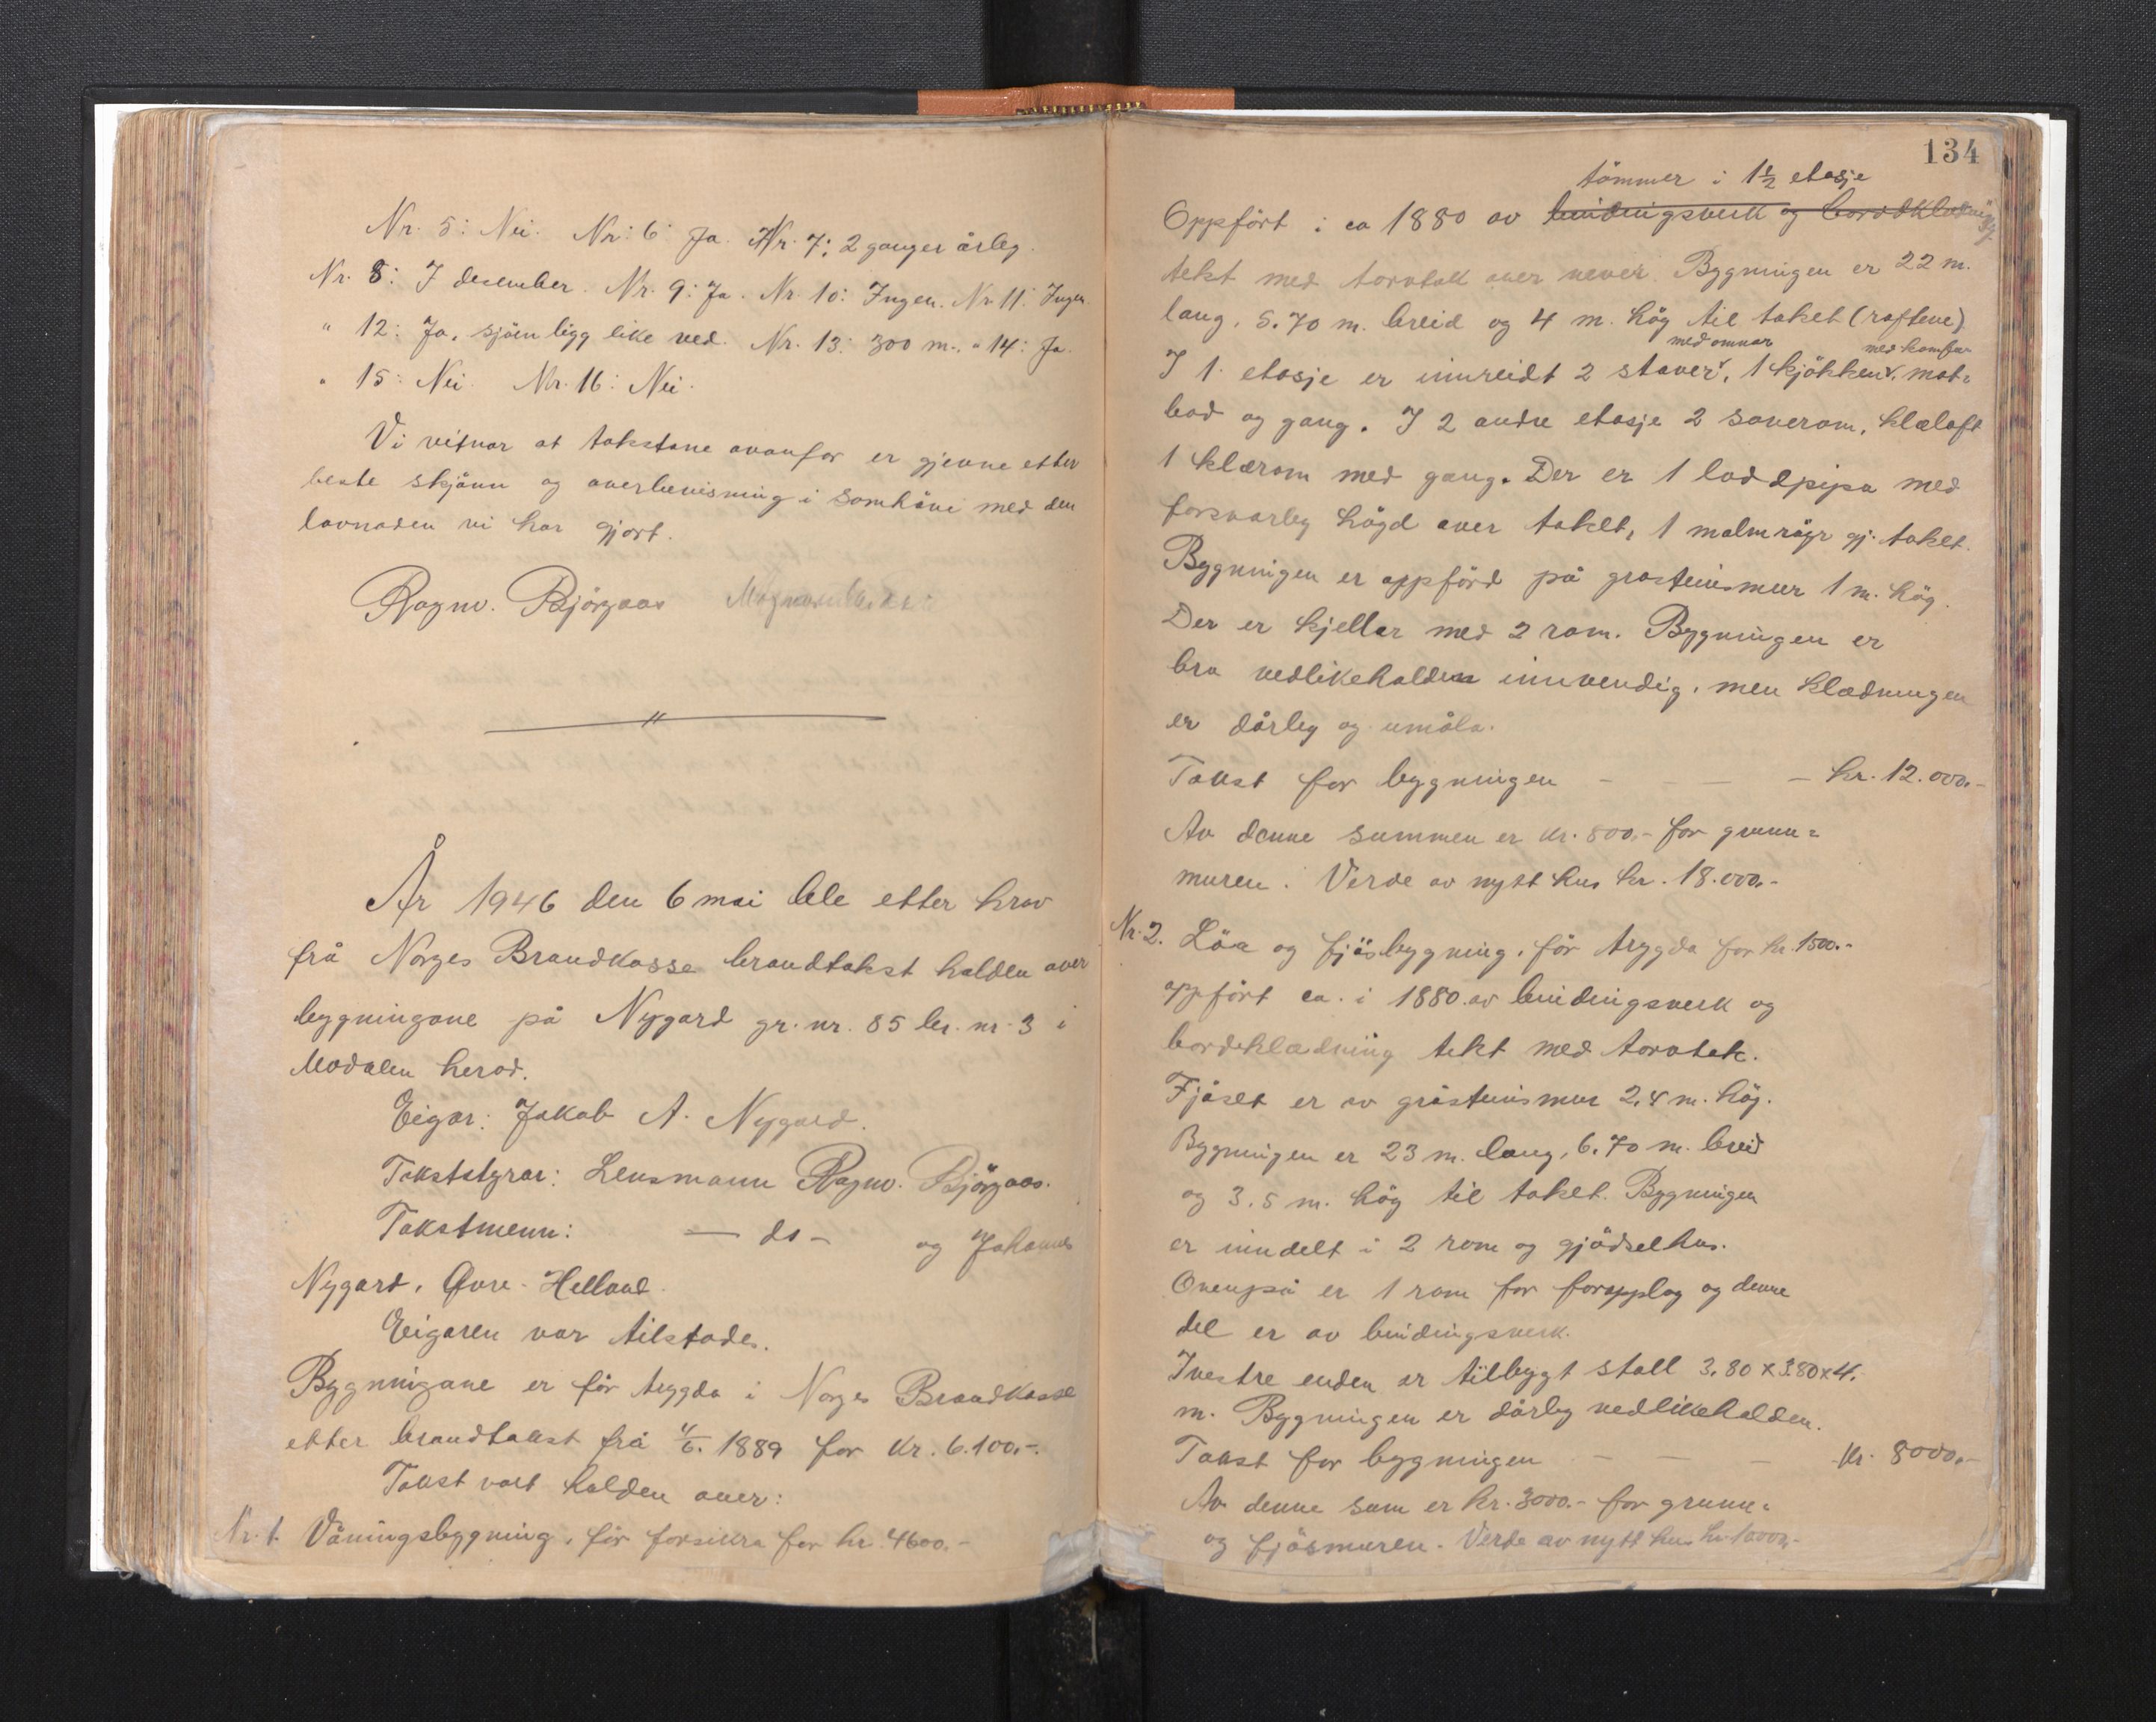 Nr. 5: Nei. Nr: 6: Ja. Nr. 7: 2 ganger årleg.
Nr. 8: I desember. Nr. 9: Ja. Nr. 10: Ingen. Nr 11: Ingen.
" 12: Ja, sjöen ligg like ved. Nr. 13: 300 m. " 14: Ja.
" 15: Nei. Nr. 16: Nei.
Vi vitnar at takstane ovanfor er gjevne etter
beste skjönn og overbevisning i samhöve med den
lovnaden vi har gjort.
Ragnv. Björgaas
År 1946 den 6 mai ble etter krav
frå Norges Brandkasse brandtakst halden over
bygningane på Nygard gr. nr. 85 br. nr. 3 i
Modalen herad.
Eigar: Jakob A. Nygard.
Takststyrar: Lensmann Ragnv. Björgaas.
Takstmenn: — do — og Johannes
Nygard, Øvre-Helland.
Eigaren var tilstades.
Bygningane er för trygda i Norges Brandkasse
etter brandtakst frå 4/6. 1889 for kr. 6.100.-.
Takst vart halden over:
Nr. 1. Våningsbygning, för forsikra for kr. 4600.-
134
tömmer i 1 1/2 etasje
Oppfört i ca 1880 av bindingsverk og bordklædning
tekt med torvtak over never. Bygningen er 22 m.
lang, 5.70 m. breid og 4 m. hög til taket (raftene)
med omnar med komfur
I 1. etasje er innreidt 2 stover, 1 kjökken, mat=
bod og gang. I 2 andre etasje 2 soverom, klæloft
1 klærom med gang. Der er 1 loddpipa med
forsvarleg högd over taket, 1 malmröyr gj. taket.
Bygningen er oppförd på grasteinsmur 1 m. hög.
Der er kjellar med 2 rom. Bygningen er
bra vedlikehalden innvendig, men klædningen
er dårleg og umåla.
Takst for bygningen - - - kr. 12.000.-
Av denne summen er kr. 800.- for grunn=
muren. Verde av nytt hus kr. 18.000.-
Nr. 2. Löa og fjösbygning, för trygda for kr. 1500.-
oppfört ca. i 1880 av bindingsverk og
bordklædning tekt med torvtak.
Fjöset er av gråsteinsmur 2,4 m. hög.
Bygningen er 23 m. lang, 6.70 m. breid
og 3.5 m. hög til taket. Bygningen
er inndelt i 2 rom og gjödselhus.
Ovenpå er 1 rom for foropplag og denne
del er av bindingsverk.
I vestre enden er tilbygt stall 3.80 x 3.80 x 4.
m. Bygningen er dårleg vedlikehalden.
Takst for bygningen - - - kr. 8000.-
Av denne sum er kr. 3000.- for grunn=
og fjösmuren. Verde av nytt hus kr. 10000.-